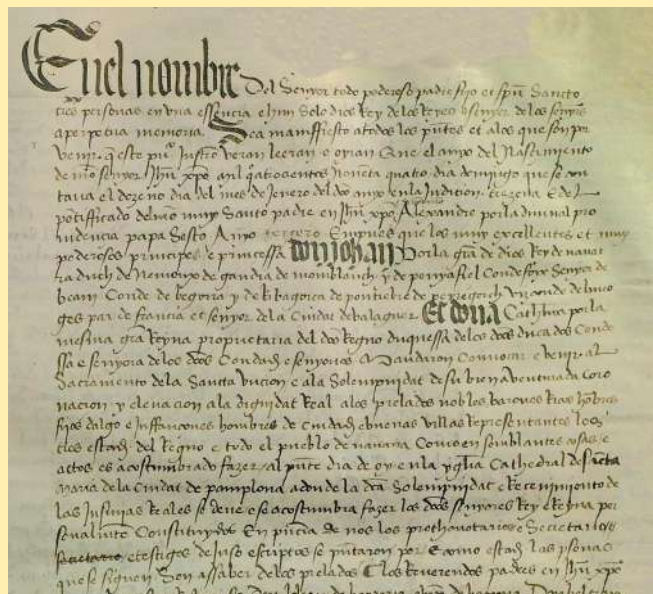 En el nombre Del Senyor todo poderoso padre fijo et spu Sancto
tres personas en vna essencia e hun Solo dios Rey de los Reyes e senyor de los senyores
a perpetua memoria. Sea manifiesto a todos los pntes et a los que son por
venir que este pnt Instro veran leeran e oyran Que el anyo del Nascimiento
de nro senyor Jhu xpo mil quatrozientos Nouenta quatro dia domingo que se con
taua el dozeno dia del mes de Jenero del dco anyo en la Indition trezena E del
potifficado del nro muy Santo padre en Jhu xpo Alexandre por la diuinal pro
uidencia papa Sesto Anyo tercero Empues que los muy excellentes et muy
poderosos principes e princessa don johan Por la gra de dios Rey de nauar
ra duch de Nemoux de gandia de momblanch y de penyafiel Conde foix Senyor de
bearn Conde de begorra y de Ribagorça de pontieure de peregorch vizconde de limo
ges par de francia et senyor de la Ciudat de balaguer Et dona Cathlina por la
mesma gra Reyna proprietaria del dco Regno duquessa de los dcos ducados Conde
ssa e senyora de los dcos Condados e senyorios Mandaron Conuocar e venir al
Sacramento de la Sancta vncion e a la Solempnidat de su bien auenturada Coro
nacion y eleuacion a la dignidat Real a los prelados nobles barones Ricos hobres
fijos dalgo e Inffançones hombres de Ciudades e buenas villas Representantes los
tres estados del Regno e todo el pueblo de nauarra Como en semblantes cosas e
actos es acostumbrado fazer al pnte dia de oy en la yglia Cathedral de Sancta
maria de la Ciudat de pamplona adonde la dca Solempnidat e Recenimiento de
las Insinias Reales se deue e se acostumbra fazer los dcos senyores Rey e Reyna per
sonalmte Constituydos En pncia de nos los prothonotarios e Secretarios
e testigos de Juso escriptos se pntaron por e como estados las psonas
que se siguen Son assaber de los prelados los Reuerendos padres en Jhu xpo